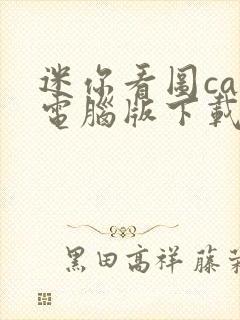 迷你看图ca
電腦版下載
黑田高祥 藤